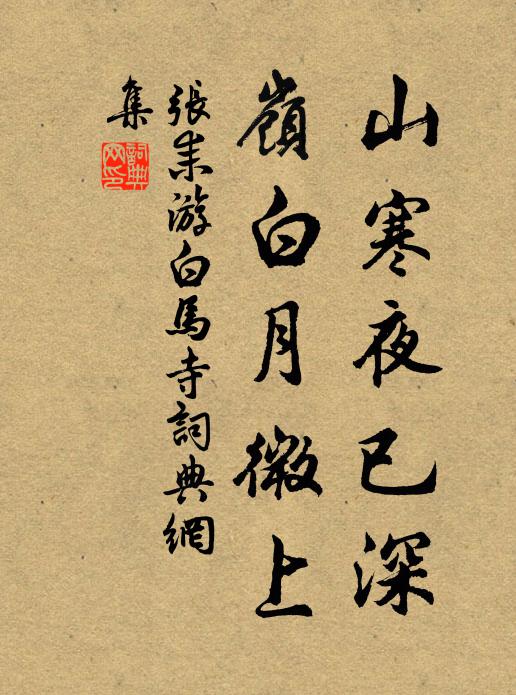 山寒夜已深
嶺白月微上
張耒游白馬寺詞典網
集
詞典
网印